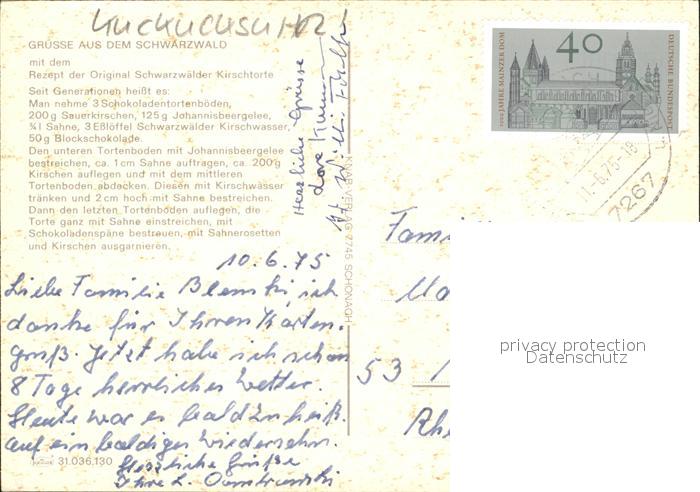 Kuckucksuhr
GRÜSSE AUS DEM SCHWARZWALD
mit dem
Rezept der Original Schwarzwälder Kirschtorte
Seit Generationen heißt es:
Man nehme 3 Schokoladentortenböden,
200 g Sauerkirschen, 125 g Johannisbeergelee,
¾ l Sahne, 3 Eßlöffel Schwarzwälder Kirschwasser,
50 g Blockschokolade.
Den unteren Tortenboden mit Johannisbeergelee
bestreichen, ca. 1 cm Sahne auftragen, ca. 200 g
Kirschen auflegen und mit dem mittleren
Tortenboden abdecken. Diesen mit Kirschwasser
tränken und 2 cm hoch mit Sahne bestreichen.
Dann den letzten Tortenboden auflegen, die
Torte ganz mit Sahne einstreichen, mit
Schokoladenspäne bestreuen, mit Sahnerosetten
und Kirschen ausgarnieren.
10.6.75
Liebe Familie Blenski ich
danke für Ihren Karten-
gruß. Jetzt habe ich schon
8 Tage herrliches Wetter.
Heute war es bald zu heiß.
Auf ein baldiges Wiedersehn.
Herzliche Grüße
Ihre L.
31.036.130
Herzliche Grüße
VERLAG 7745 SCHONACH
1000 JAHRE MAINZER DOM
40
DEUTSCHE BUNDESPOST
11.-6.75-18
7267
Fami
53
Rhe
privacy protection
Datenschutz